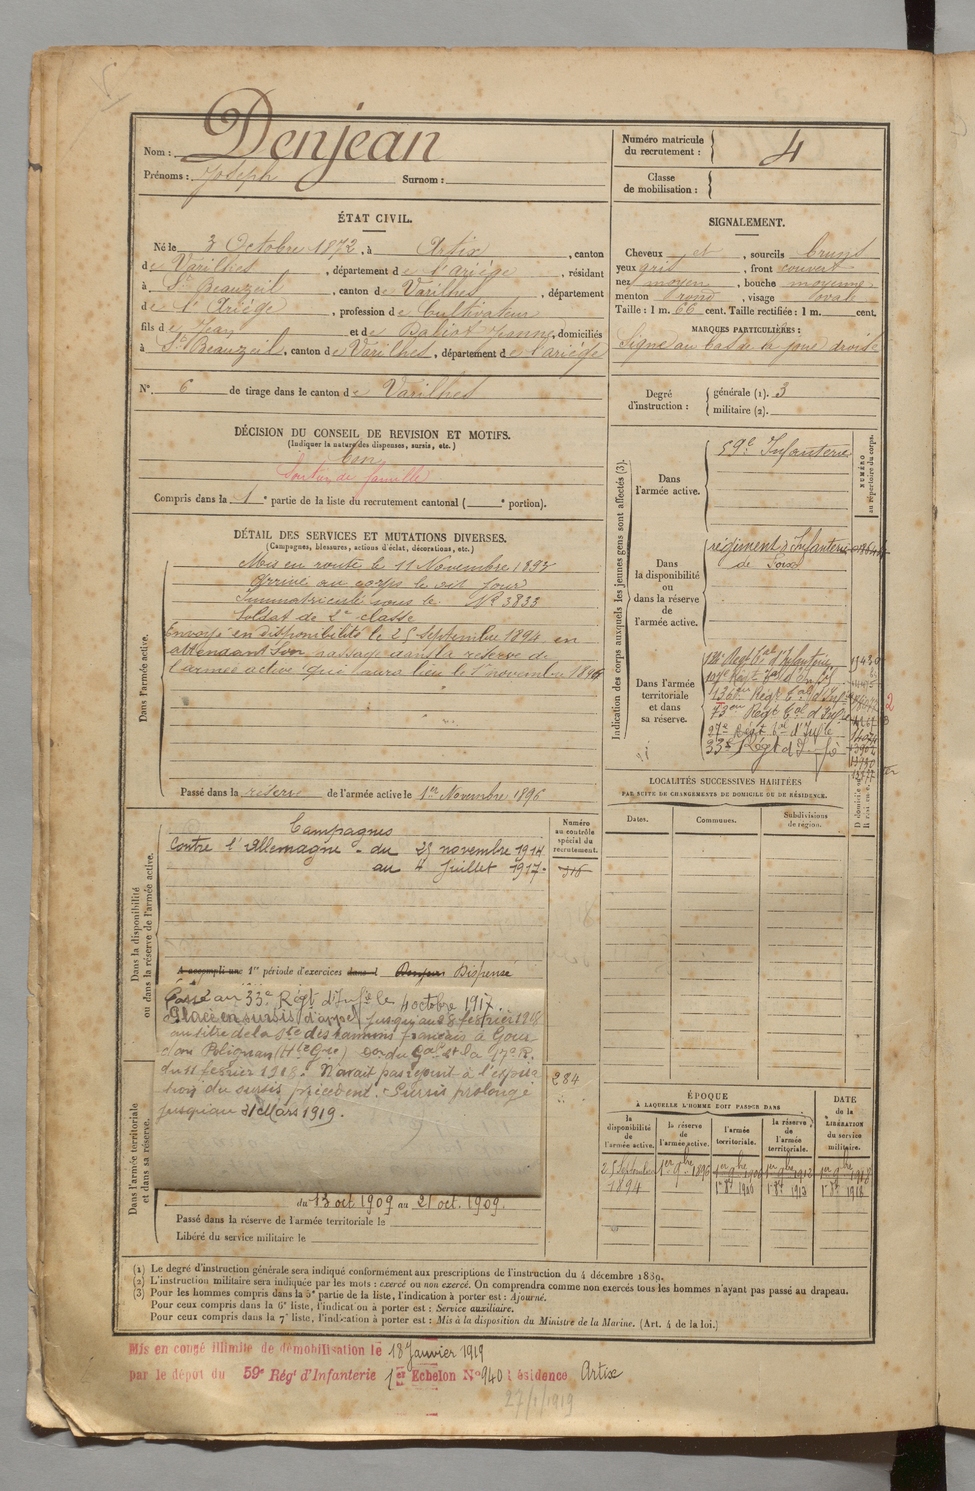 Nom : Denjean
Prénoms : Joseph Surnom :
Numéro matricule du recrutement : 4
Classe de mobilisation :
ÉTAT CIVIL.
Né le 3 Octobre 1872, à Artix, canton
de Varilhes, département de l'Ariège, résidant
à St Beauzeil, canton de Varilhes, département
de l'Ariège, profession de Cultivateur
fils de Jean et de Babiot Jeanne, domiciliés
à St Beauzeil, canton de Varilhes, département de l'Ariège
N° 6 de tirage dans le canton de Varilhes
DÉCISION DU CONSEIL DE REVISION ET MOTIFS.
(Indiquer la nature des dispenses, sursis, etc.)
Bon
Soutien de famille
Compris dans la 1e partie de la liste du recrutement cantonal ( e portion).
SIGNALEMENT.
Cheveux et, sourcils bruns
yeux gris, front couvert
nez moyen, bouche moyenne
menton rond, visage ovale
Taille : 1 m. 66 cent. Taille rectifiée : 1 m. cent.
MARQUES PARTICULIÈRES :
Signe au bas de la joue droite
Degré d'instruction : générale (1). 3
militaire (2).
DÉTAIL DES SERVICES ET MUTATIONS DIVERSES.
(Campagnes, blessures, actions d'éclat, décorations, etc.)
Dans l'armée active.
Mis en route le 11 Novembre 1893
Arrivé au corps le dit jour
Immatriculé sous le N° 3833
Soldat de 2e classe
Envoyé en disponibilité le 25 Septembre 1894 en
attendant son passage dans la réserve de
l'armée active qui aura lieu le 1er novembre 1896
Passé dans la réserve de l'armée active le 1er Novembre 1896
Indication des corps auxquels les jeunes gens sont affectés (3).
NUMÉRO au répertoire du corps.
Dans l'armée active.
59e Infanterie
Dans la disponibilité ou dans la réserve de l'armée active.
régiment d'Infanterie
de Foix
Dans l'armée territoriale et dans sa réserve.
136em Regt tal d'Infie
73em Regt tal d'Infie
27e Régt tal d'Infie
33e Régt d'Infie
LOCALITÉS SUCCESSIVES HABITÉES
PAR SUITE DE CHANGEMENTS DE DOMICILE OU DE RÉSIDENCE.
Dates. Communes. Subdivisions de région.
Dans la disponibilité ou dans la réserve de l'armée active.
Numéro au contrôle spécial du recrutement.
Campagnes
Contre l'Allemagne - du 25 novembre 1914
au 4 Juillet 1917.
316
A accompli une 1re période d'exercices dans l Dispensé
Passé au 33e Régt d'Infie le 4 octobre 1917
Placé en sursis d'appel jusqu'au 28 février 1918
au titre de la Sté des tanins français à Gour
dan Polignan (Hte Gne) du Gal Ct la 17e R.
du 11 février 1918. N'avait pas rejoint à l'expira
tion du sursis précédent. Sursis prolongé
jusqu'au 31 Mars 1919.
284
Dans l'armée territoriale et dans sa réserve.
du 13 oct 1909 au 21 oct. 1909.
Passé dans la réserve de l'armée territoriale le
Libéré du service militaire le
ÉPOQUE
À LAQUELLE L'HOMME DOIT PASSER DANS
la disponibilité de l'armée active.
la réserve de l'armée active.
l'armée territoriale.
la réserve de l'armée territoriale.
DATE de la LIBÉRATION du service militaire.
25 Septembre 1er 9bre 1896 1er 9bre 1906 1er 9bre 1912 1er 9bre 1918
1894
(1) Le degré d'instruction générale sera indiqué conformément aux prescriptions de l'instruction du 4 décembre 1889.
(2) L'instruction militaire sera indiquée par les mots : exercé ou non exercé. On comprendra comme non exercés tous les hommes n'ayant pas passé au drapeau.
(3) Pour les hommes compris dans la 5e partie de la liste, l'indication à porter est : Ajourné.
Pour ceux compris dans la 6e liste, l'indication à porter est : Service auxiliaire.
Pour ceux compris dans la 7e liste, l'indication à porter est : Mis à la disposition du Ministre de la Marine. (Art. 4 de la loi.)
Mis en congé illimité de démobilisation le 18 Janvier 1919
par le dépôt du 59e Régt d'Infanterie 1er Echelon N° 940 résidence Artix
27/1/1919